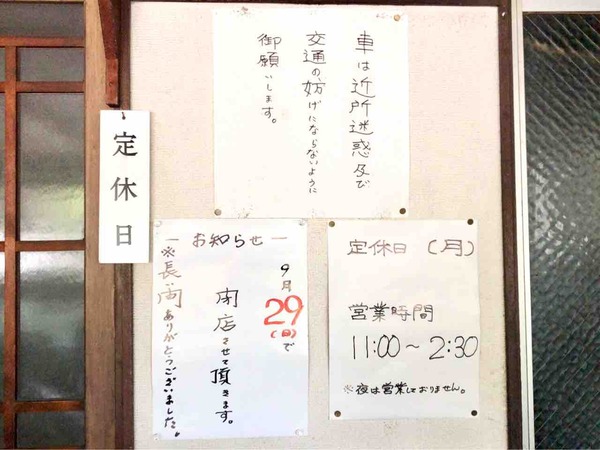 車は近所迷惑及び
交通の妨げにならないように
御願いします。
定休日
ーお知らせー
9月
29
(日)で
閉店させて頂きます。
※長い間ありがとうございました。
定休日 (月)
営業時間
11:00～2:30
※夜は営業しておりません。